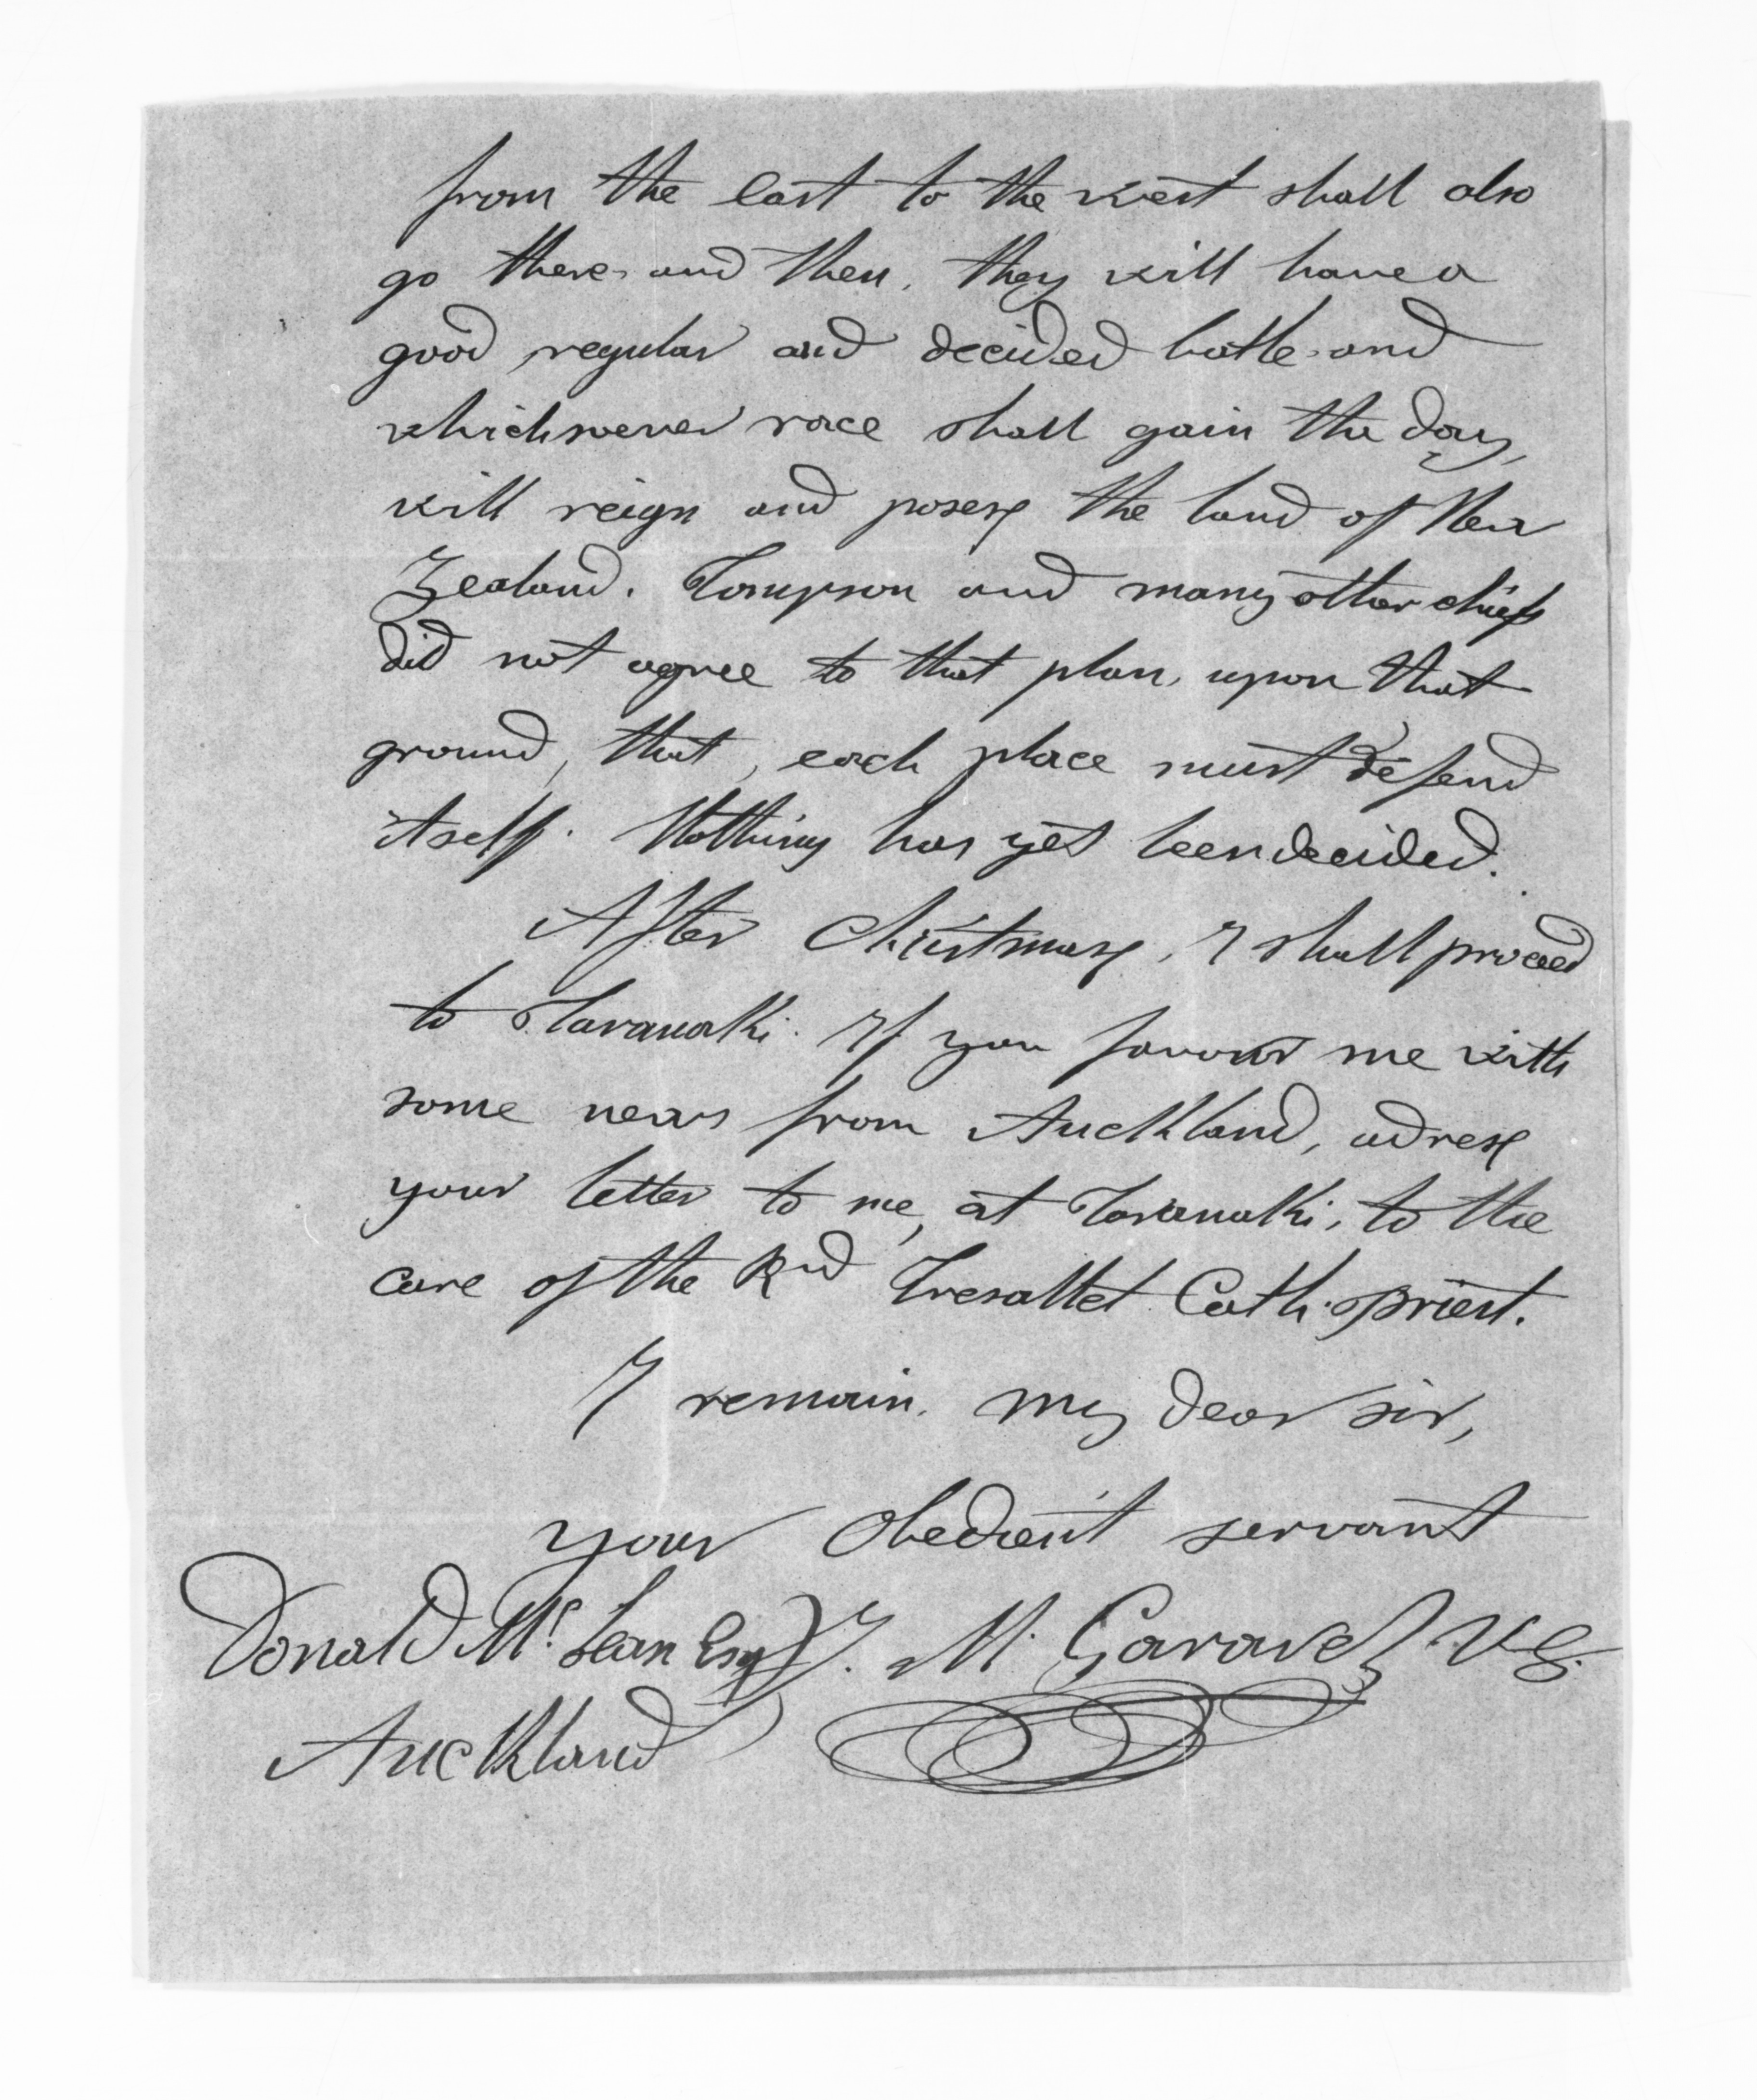 from the East to the west shall also
go there, and then, they will have a
good regular and decided battle, and
whichsoever race shall gain the day,
will reign and posess the land of New
Zealand. Tompson and many other chiefs
did not agree to that plan, upon that
ground, that, each place must defend
itself. Nothing has yet been decided.
After Christmass, I shall proceed
to Taranaki. If you favour me with
some news from Auckland, adress
your letter to me, at Taranaki, to the
care of the Rvd Tresallet Cath. priest.
I remain, my dear sir,
your obedient servant
Donald Mc Lean Esq J. M. Garavel V G.
Auckland